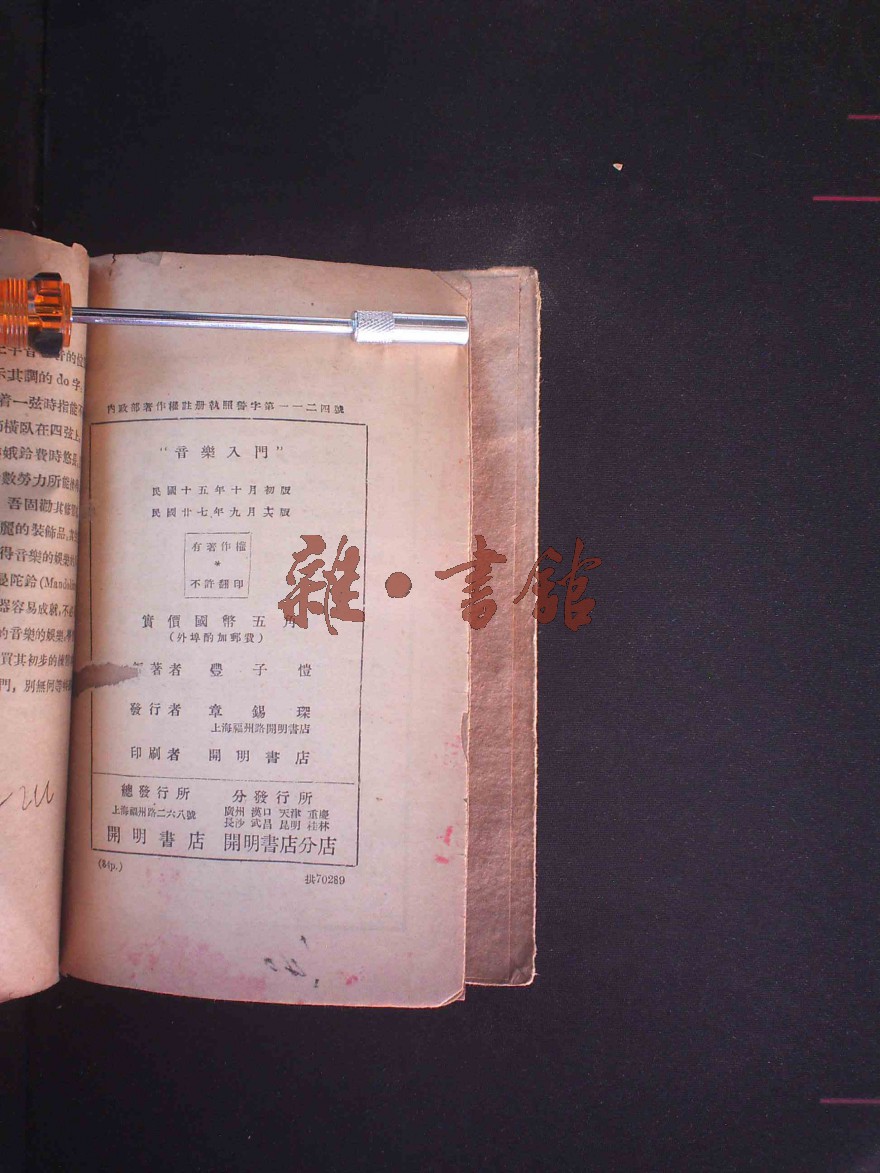 的位
示其調的 do 字
着一弦時指能
橫臥在四弦上
娥鈴費時悠長
數勞力所能
吾固勸其
麗的裝飾品
得音樂的娛樂
是陀鈴(Mandolin
器容易成就,不
的音樂的娛樂
買其初步的練
門,別無何
內政部著作權註册執照警字第一一二四號
“音樂入門”
民國十五年十月初版
民國廿七年九月　版
有著作權
＊
不許翻印
實價國幣五角
(外埠酌加郵費)
著者　豐子愷
發行者　章錫琛
上海福州路開明書店
印刷者　開明書店
總發行所
上海福州路二六八號
開明書店
分發行所
廣州 漢口 天津 重慶
長沙 武昌 昆明 桂林
開明書店分店
(84p.)
拱70289
雜・書館